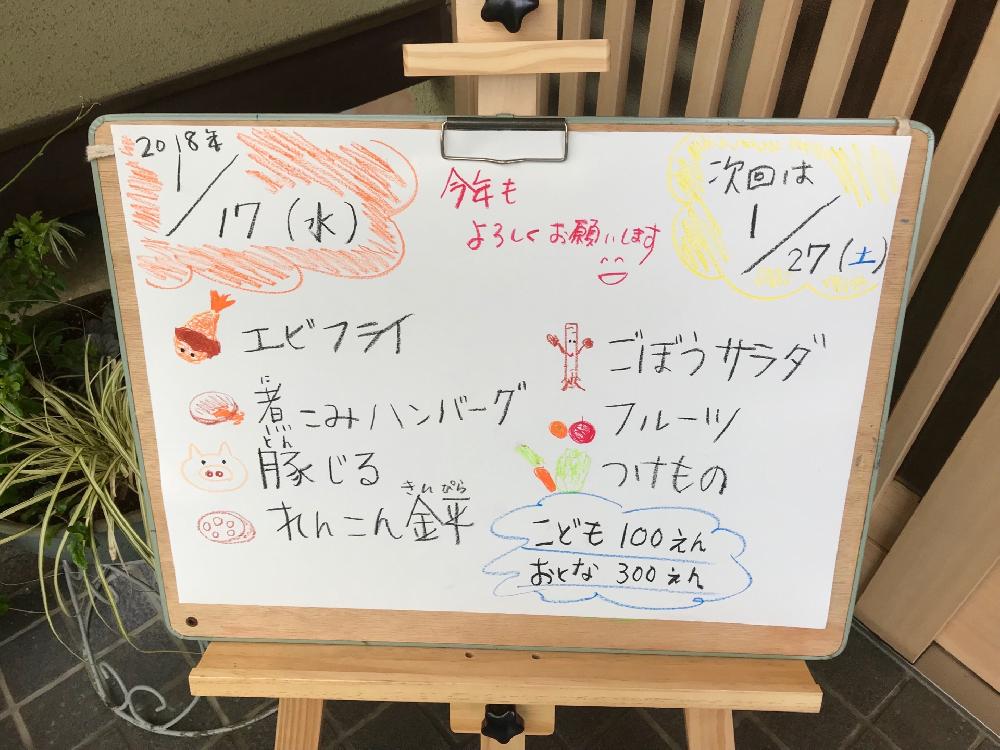 2018年
1/17(水)
今年も
よろしくお願いします
次回は
1/27(土)
エビフライ
煮こみハンバーグ
に
豚じる
とん
れんこん金平
きんぴら
ごぼうサラダ
フルーツ
つけもの
こども 100えん
おとな 300えん